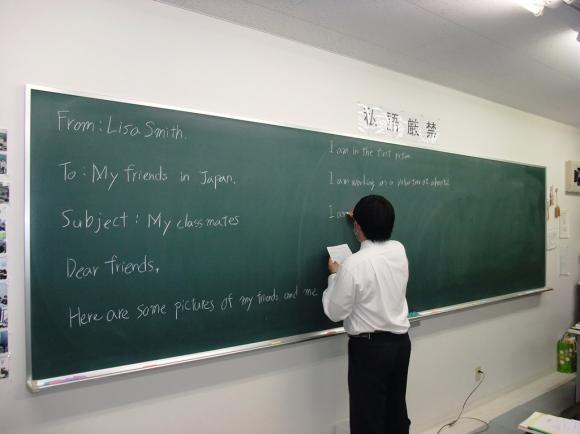 私語厳禁
From: Lisa Smith.
To: My friends in Japan.
Subject: My classmates
Dear friends,
Here are some pictures of my friends and me
I am in the first picture.
I am working as a volunteer at a hospital
I am